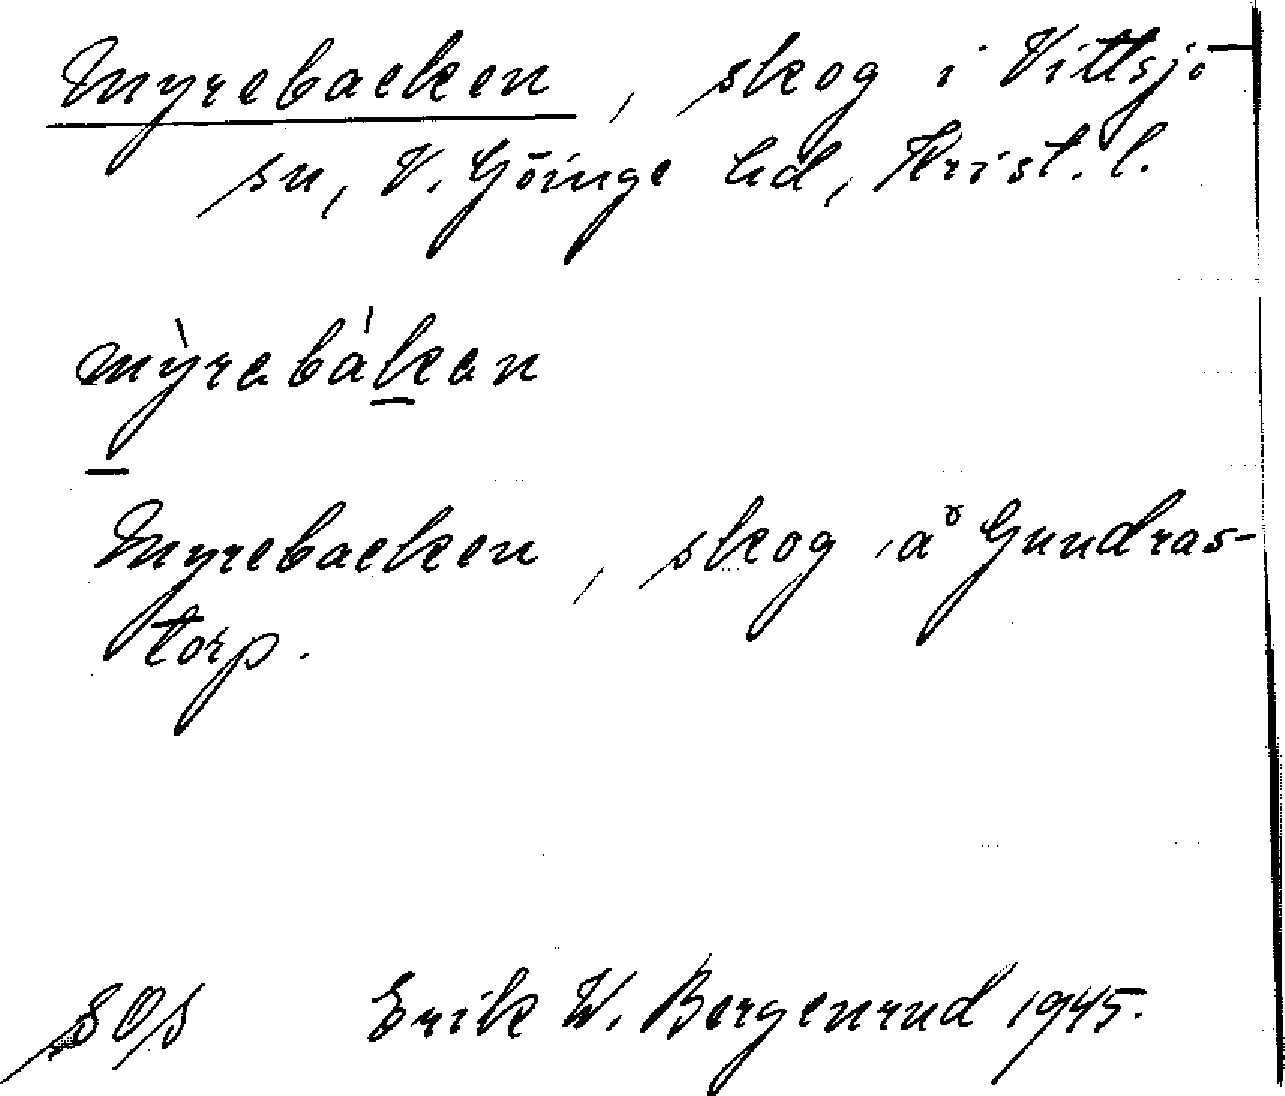 Myrebacken, skog i Vittsjö
sn, V. Göinge hd, Krist. l.
mỳrabàkan
Myrebacken, skog å Gundras-
torp.
SOS Erik W. Bergenrud 1945.